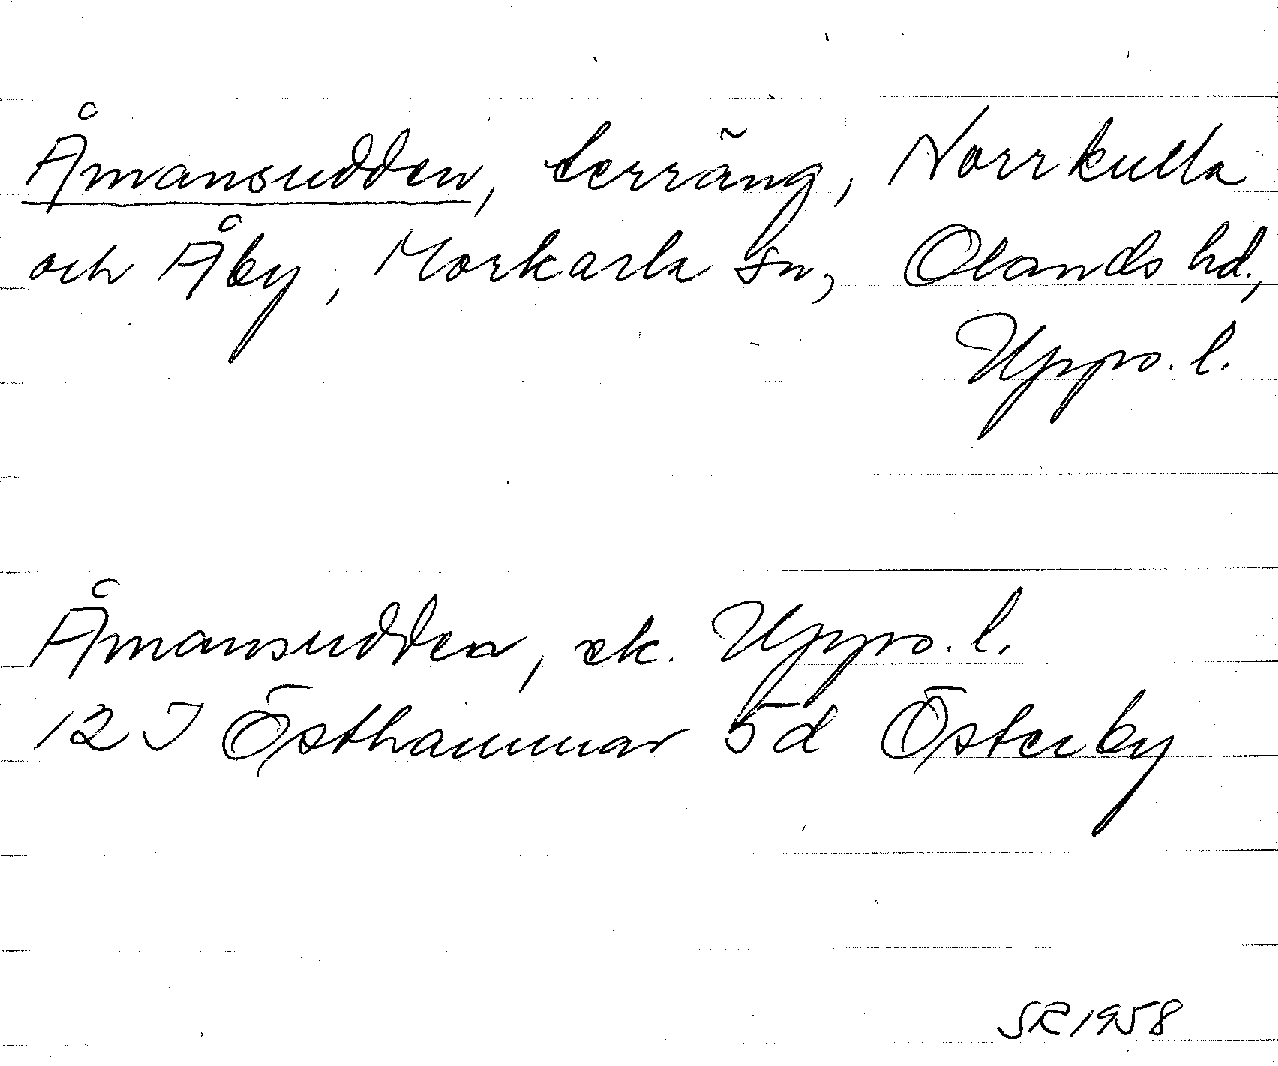 Åmansudden, terräng, Norrkulla
och Åby, Morkarla sn, Olands hd.,
Upps. l.
Åmansudden, ek. Upps. l.
12 I Östhammar 5d Österby
SR 1958